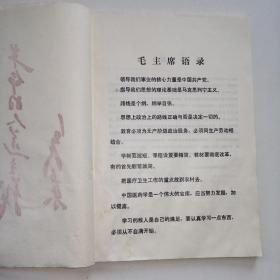 毛主席语录
领导我们事业的核心力量是中国共产党。
指导我们思想的理论基础是马克思列宁主义。
路线是个纲，纲举目张。
思想上政治上的路线正确与否是决定一切的。
教育必须为无产阶级政治服务，必须同生产劳动相
结合。
学制要缩短。课程设置要精简。教材要彻底改革，
有的首先删繁就简。
把医疗卫生工作的重点放到农村去。
中国医药学是一个伟大的宝库，应当努力发掘，加
以提高。
学习的敌人是自己的满足，要认真学习一点东西，
必须从不自满开始。